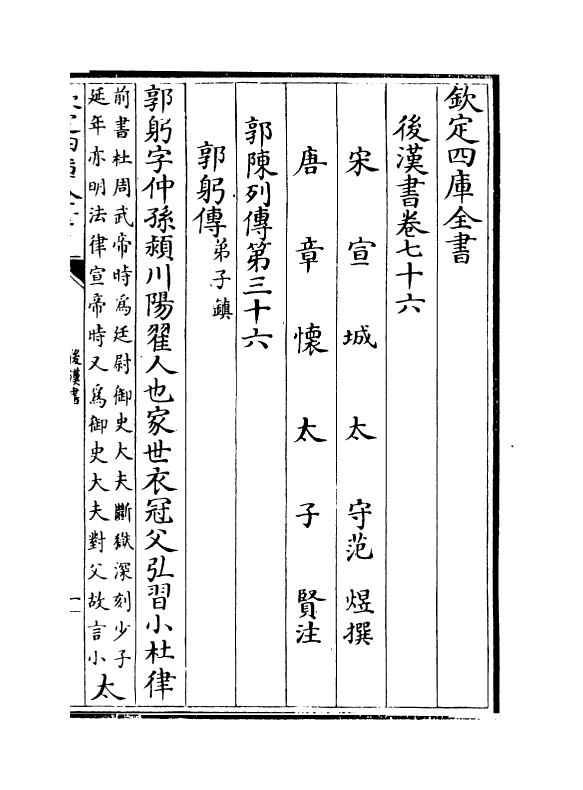 欽定四庫全書
後漢書卷七十六
宋宣城太守范煜撰
唐章懷太子賢注
郭陳列傳第三十六
郭躬傳弟子鎮
郭躬字仲孫潁川陽翟人也家世衣冠父弘習小杜律
前書杜周武帝時為廷尉御史大夫斷獄深刻少子
延年亦明法律宣帝時又為御史大夫對父故言小
太
後漢書